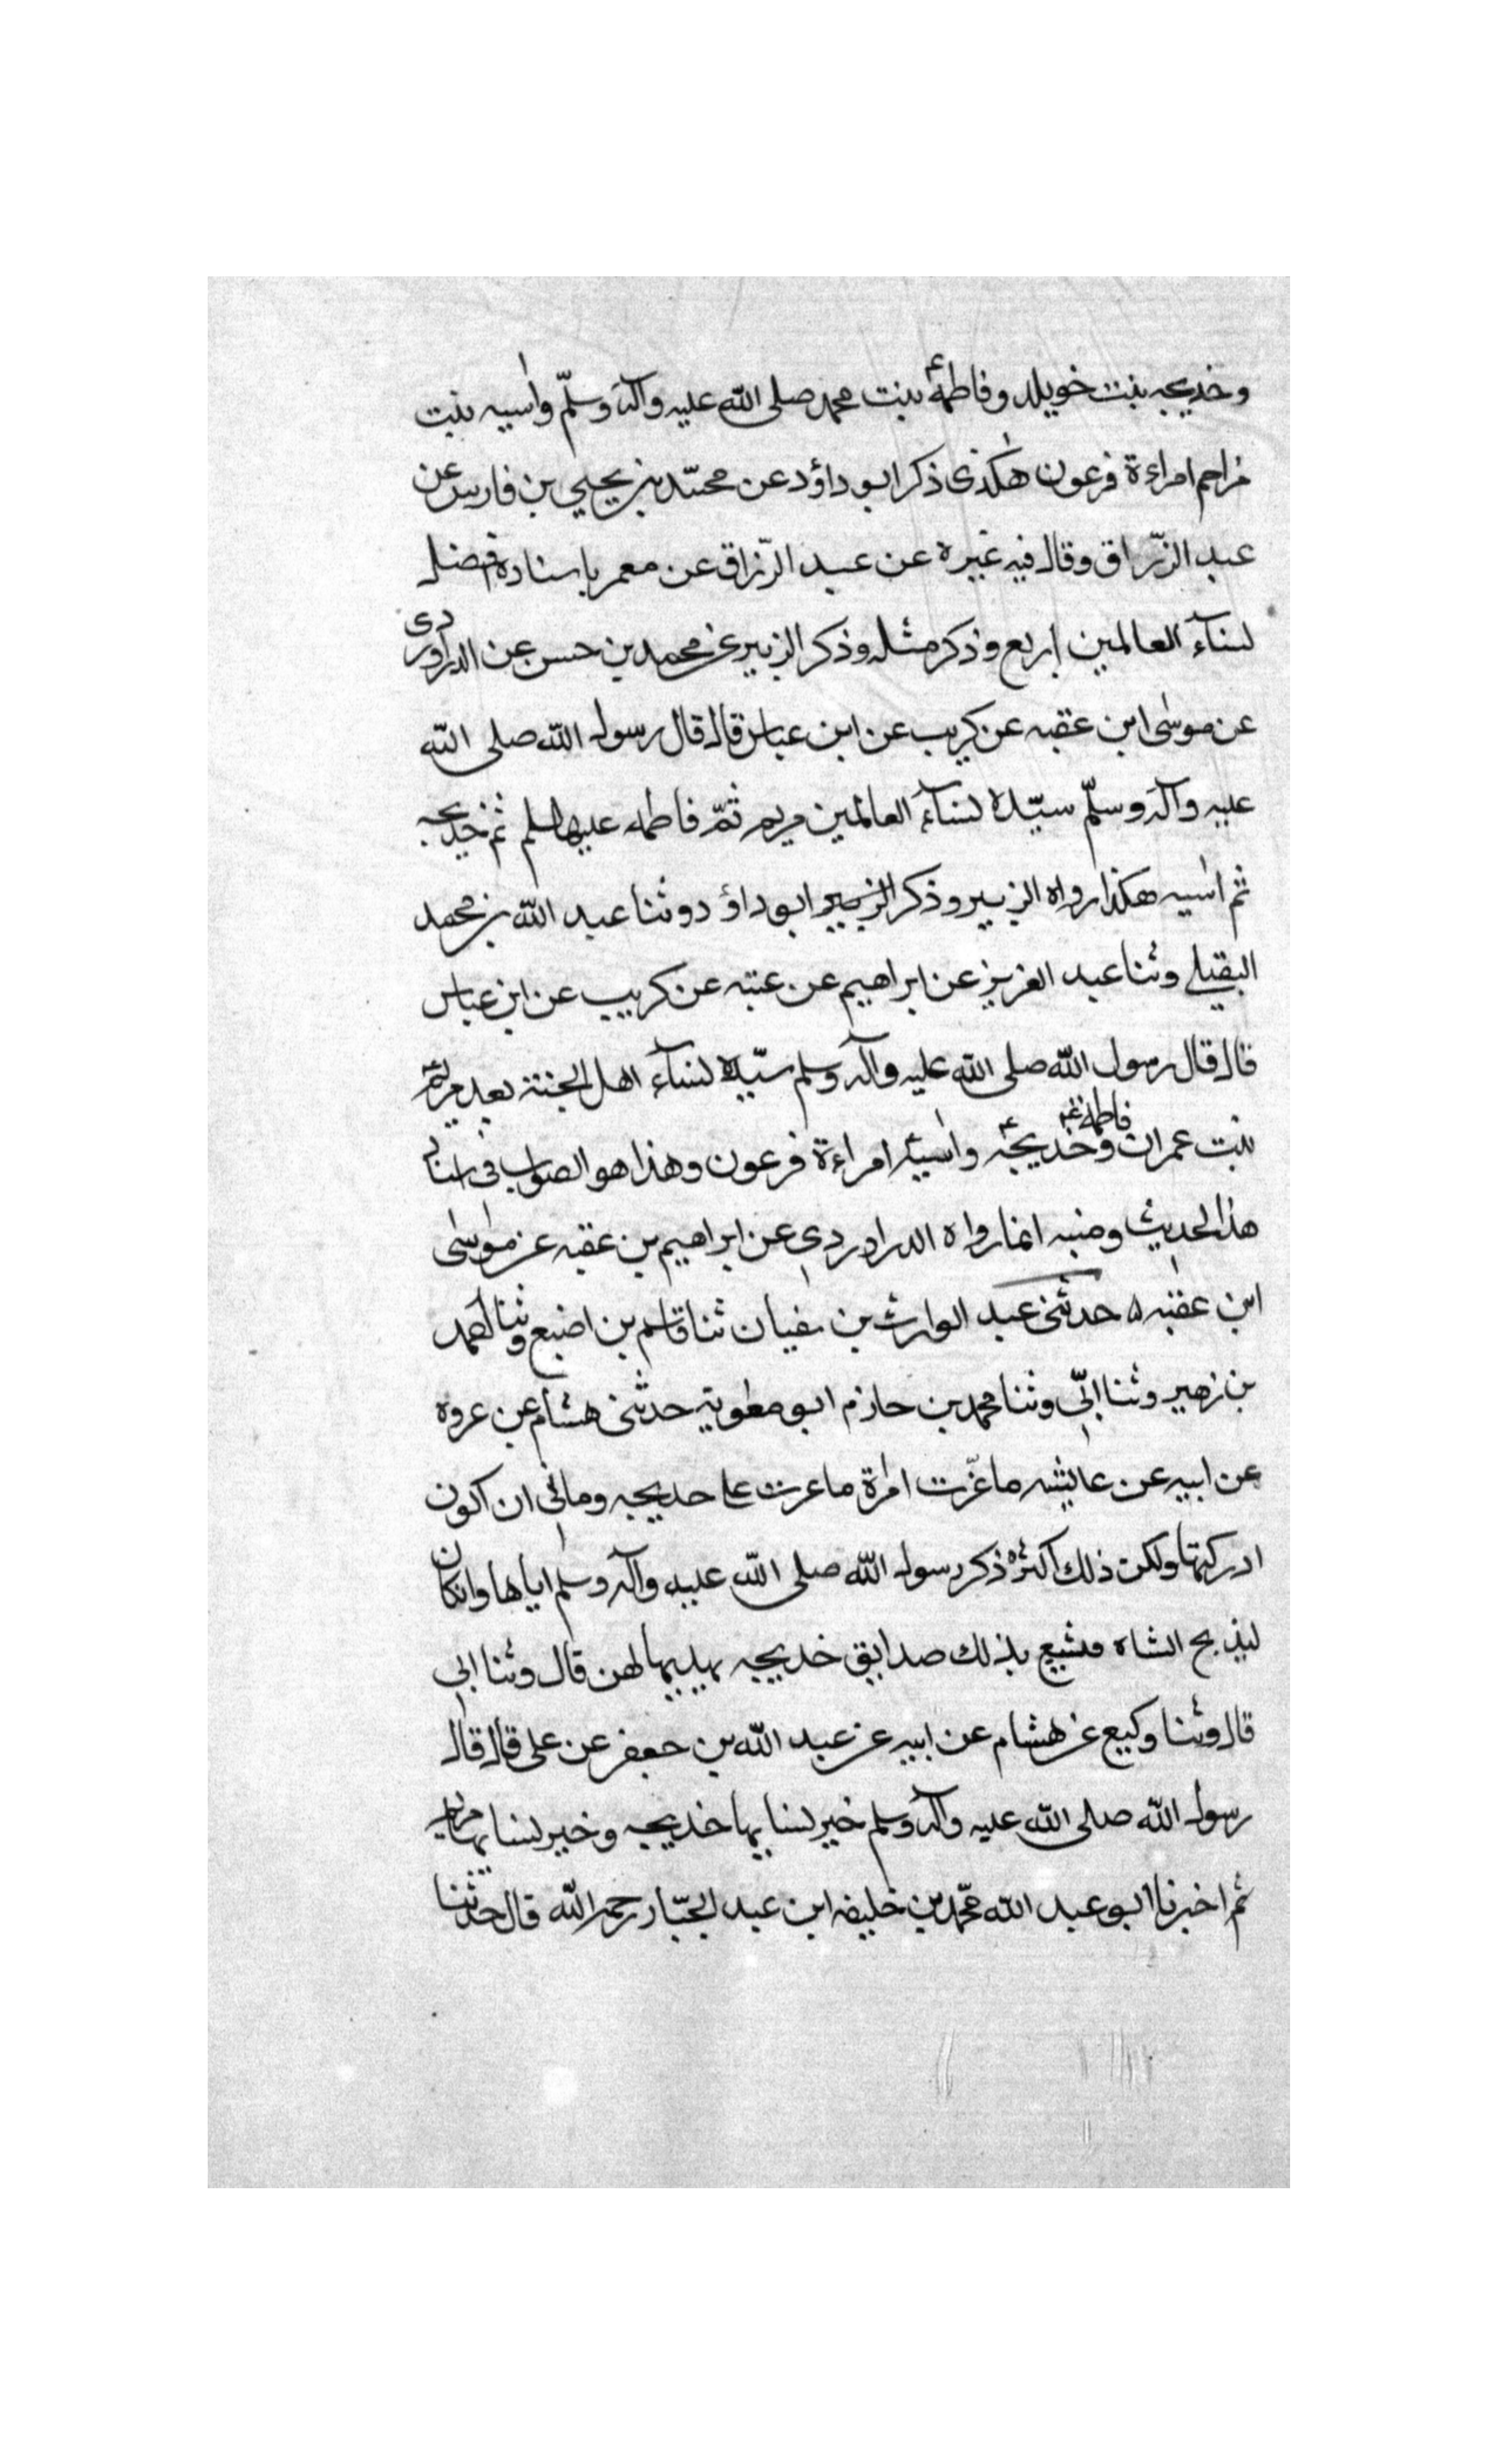 وخديجه بنت خويلد وفاطمة بنت محمد صلى الله عليه وآله وسلّم واسيه بنت
مزاحم امراءة فرعون هكذى ذكر ابو داؤد عن محمّد بن يحيي بن فارس عن
عبد الرّزاق وقال فيه غيره عن عبد الرّزاق عن معمر باسناده افضل
نسآء العالمين اربع وذكر مثله وذكر الزبير عن محمد بن حسن عن الدراوردى
عن موسى ابن عقبه عن كريب عن ابن عباس قال قال رسول الله صلى الله
عليه وآله وسلّم سيّدة نسآء العالمين مريم ثمّ فاطمه عليها السلم ثم خديجه
ثم اسيه هكذا رواه الزبير وذكر الزبير ابو داؤد وثنا عبد الله بن محمد
البقيلي وثنا عبد العزيز عن ابراهيم عن عتبه عن كريب عن ابن عباس
قال قال رسول الله صلى الله عليه وآله وسلم سيّدة نسآء اهل الجنة بعد مريم
بنت عمران فاطمة وخديجة واسية امراءة فرعون وهذا هو الصواب فى اسناد
هذا الحديث ومنبه انما رواه الدراوردي عن ابراهيم بن عقبه عن موسى
ابن عقبه حدثنى عبد الوارث بن سفيان ثنا قاسم بن اضبع وثنا احمد
بن زهير وثنا ابيّ وثنا محمد بن حازم ابو معوية حدثنى هشام عن عروه
عن ابيه عن عايشه ما غرّت امراة ما غرت على خديجه ومانى ان اكون
ادركتها ولكن ذلك اكثره ذكر رسول الله صلى الله عليه وآله وسلم اياها وانكان
ليذبح الشاه فتتبع بذلك صدايق خديجه يهديها لهن قال وثنا ابي
قال وثنا وكيع عن هشام عن ابيه عن عبد الله بن جعفر عن على قال قال
رسول الله صلى الله عليه وآله وسلم خير نسايها خديجه وخير نسايها مريم
ثم اخبرنا ابو عبد الله محمّد بن خليفه ابن عبد الجبّار رحمه الله قال حدثنا